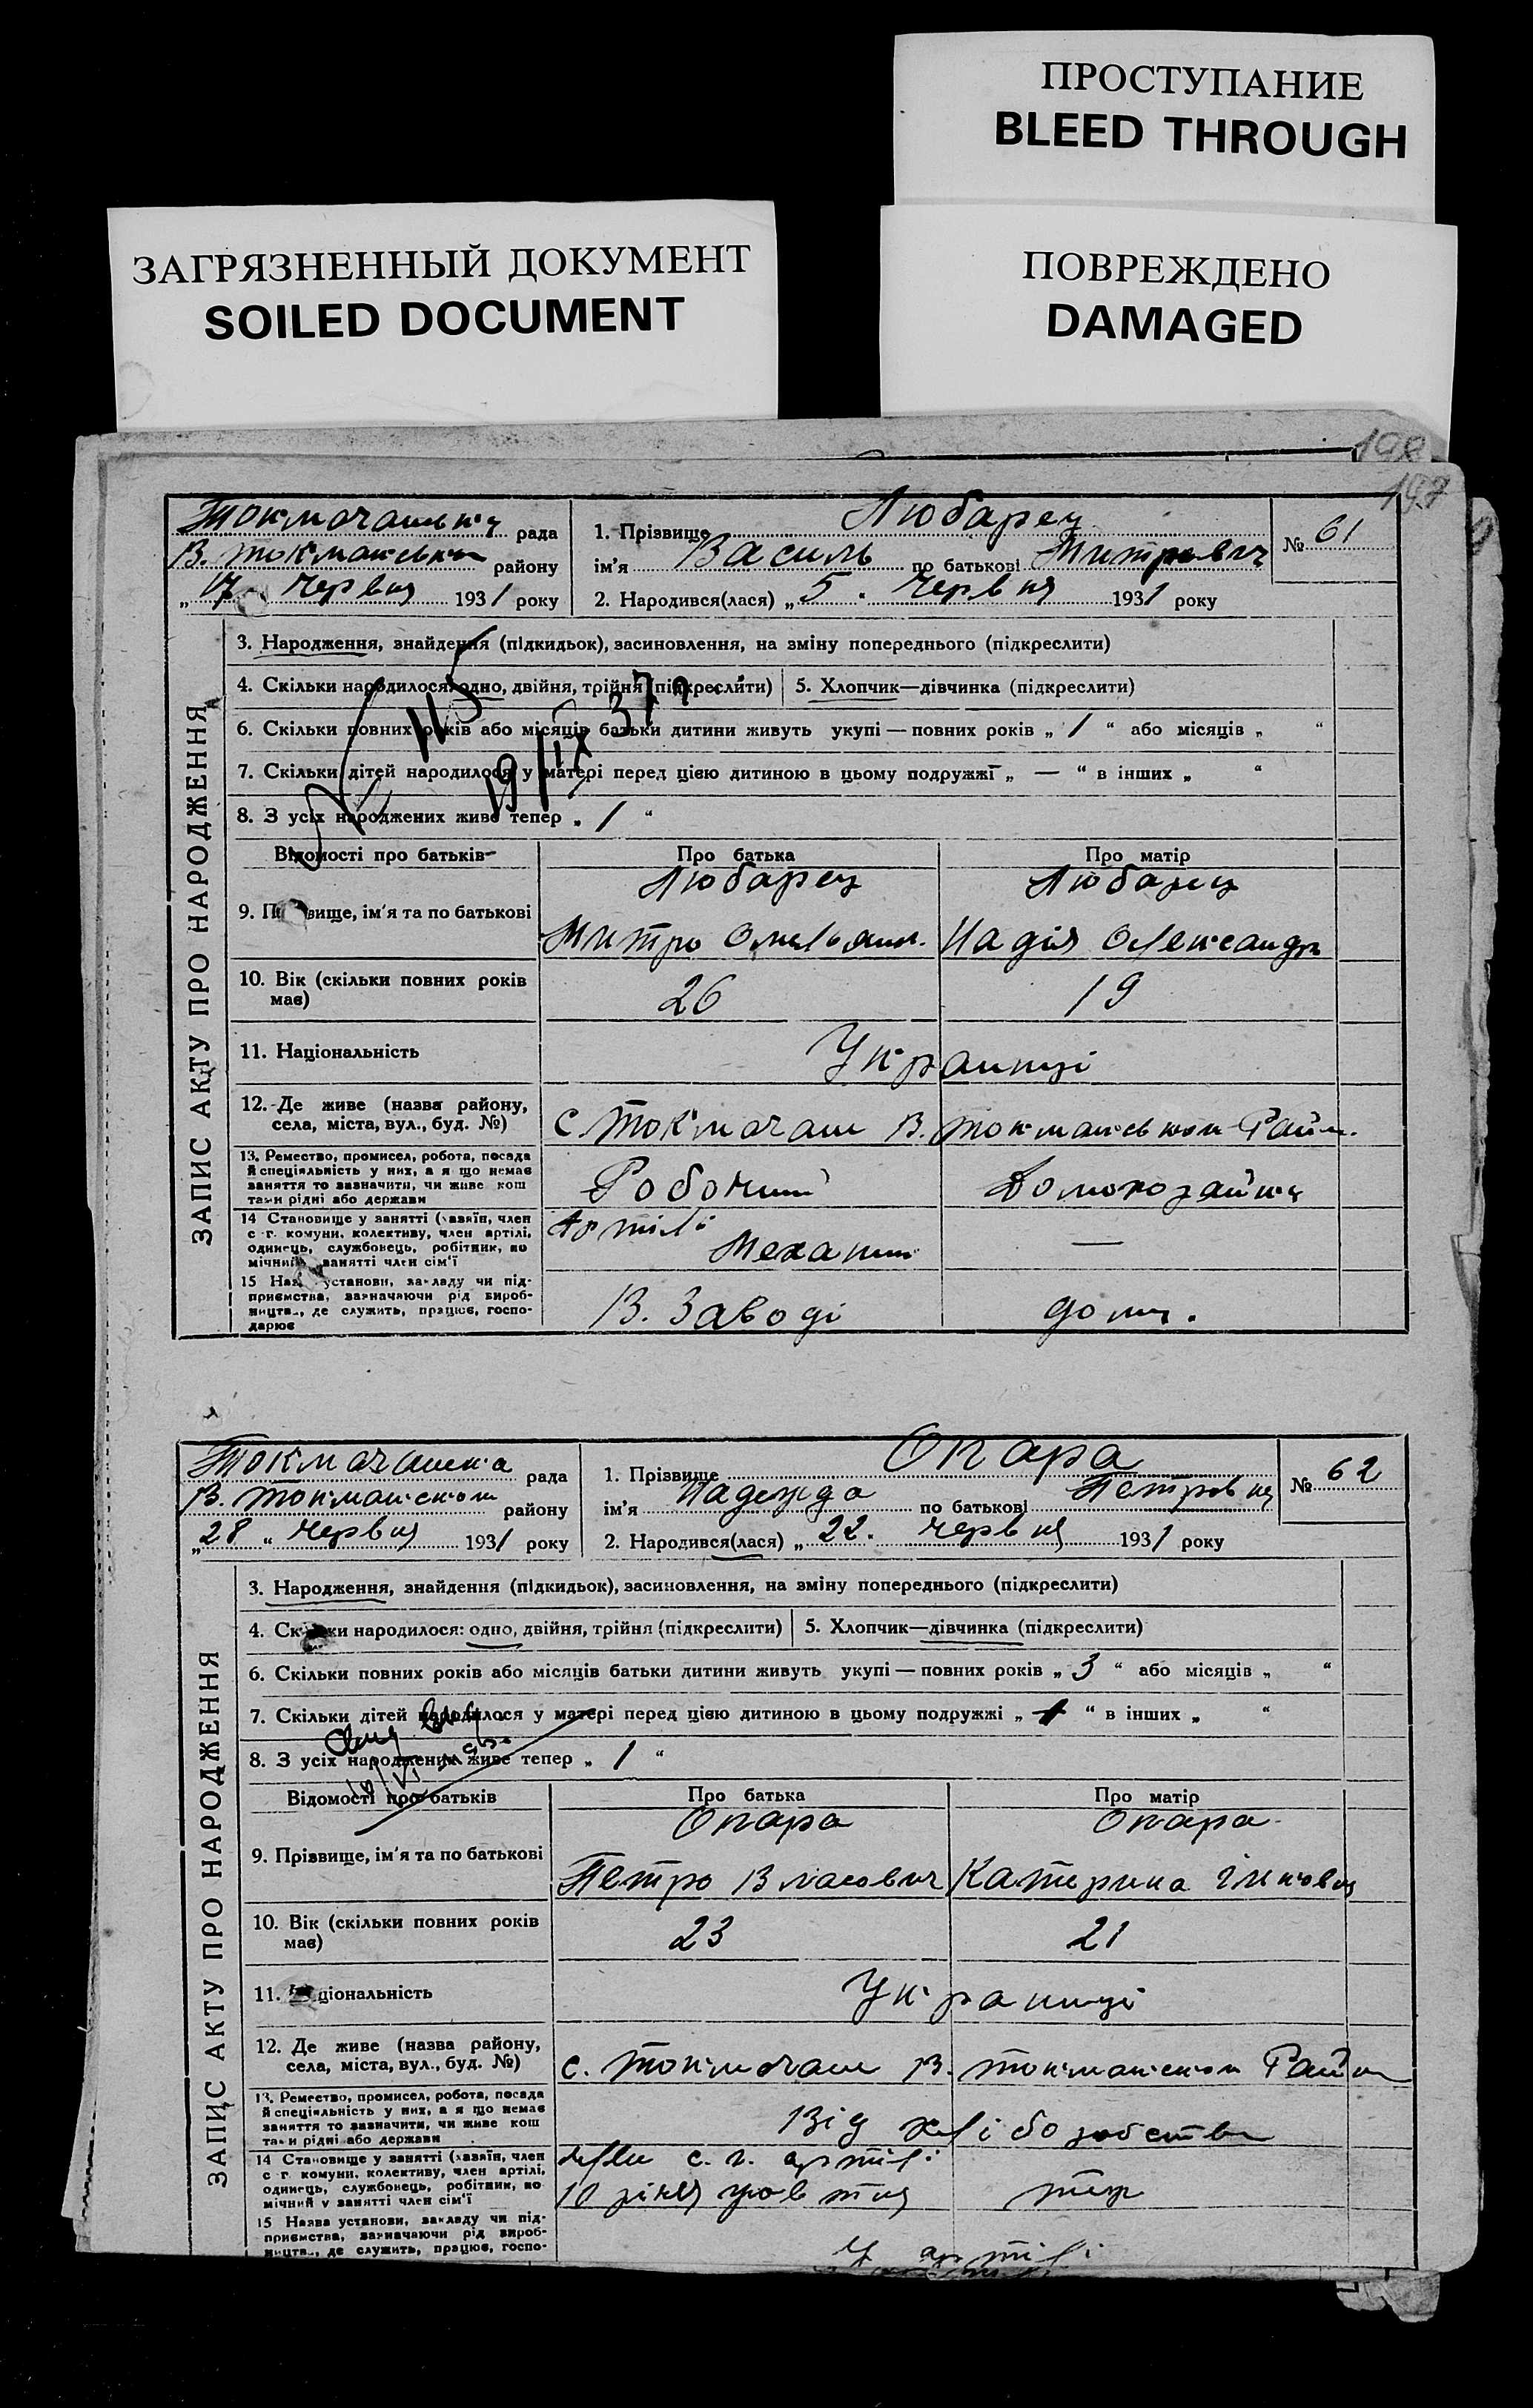 ПРОСТУПАНИЕ
BLEED THROUGH
ЗАГРЯЗНЕННЫЙ ДОКУМЕНТ
SOILED DOCUMENT
ПОВРЕЖДЕНО
DAMAGED
198
197
рада
В. Токмакськ району
„17 Червня 1931 року
1. Прізвище Любарец
ім'я Василь по батькові Митрович
№ 61
2. Народився(лася) „5. Червня 1931 року
ЗАПИС АКТУ ПРО НАРОДЖЕННЯ
3. Народження, знайдення (підкидьок), засиновлення, на зміну попереднього (підкреслити)
4. Скільки народилося: одно, двійня, трійня (підкреслити) 5. Хлопчик—дівчинка (підкреслити)
6. Скільки повних років або місяців батьки дитини живуть укупі — повних років „ 1 “ або місяців „ “
7. Скільки дітей народилося у матері перед цією дитиною в цьому подружжі „ — “ в інших „ “
8. З усіх народжених живе тепер „ 1 “
19/IX 37
Відомості про батьків Про батька Про матір
Любарец Любарец
9. Прізвище, ім'я та по батькові
Митро Омельян. Надія Олександр
10. Вік (скільки повних років має) 26 19
11. Національність Українці
12. Де живе (назва району, села, міста, вул., буд. №) с. Токмочаш В. Токмакськ Район.
13. Ремество, промисел, робота, посада
й спеціяльність у них, а я що немає
заняття то зазначити, чи живе кош
тами рідні або держави
Робочий Домохозяйка
14 Становище у занятті (хазяїн, член
с.-г. комуни, колективу, член артілі,
одинець, службовець, робітник, по
мічний в занятті член сім'ї
Артілі
Механик —
15 Назва установи, закладу чи під-
приємства, зазначаючи рід вироб-
ництва, де служить, працює, госпо-
дарює
В. Заводі дома.
рада
В. Токмакском району
„28“ Червня 1931 року
1. Прізвище Опара
ім'я Надежда по батькові Петровна
№ 62
2. Народився(лася) „22. червня 1931 року
ЗАПИС АКТУ ПРО НАРОДЖЕННЯ
3. Народження, знайдення (підкидьок), засиновлення, на зміну попереднього (підкреслити)
4. Скільки народилося: одно, двійня, трійня (підкреслити) 5. Хлопчик—дівчинка (підкреслити)
6. Скільки повних років або місяців батьки дитини живуть укупі — повних років „ 3 “ або місяців „ “
7. Скільки дітей народилося у матері перед цією дитиною в цьому подружжі „ 1 “ в інших „ “
8. З усіх народжених живе тепер „ 1 “
Відомості про батьків Про батька Про матір
Опара Опара
9. Прізвище, ім'я та по батькові
Петро Власович Катерина
10. Вік (скільки повних років має) 23 21
11. Національність Українці
12. Де живе (назва району, села, міста, вул., буд. №) с. Токмочаш В. Токмакском Район
13. Ремество, промисел, робота, посада
й спеціяльність у них, а я що немає
заняття то зазначити, чи живе кош
тами рідні або держави
Від хлібозобства
14 Становище у занятті (хазяїн, член
с.-г. комуни, колективу, член артілі,
одинець, службовець, робітник, по
мічний у занятті член сім'ї
член с. г. артілі
10 річя жовтня
15 Назва установи, закладу чи під-
приємства, зазначаючи рід вироб-
ництва, де служить, працює, госпо-
У артілі